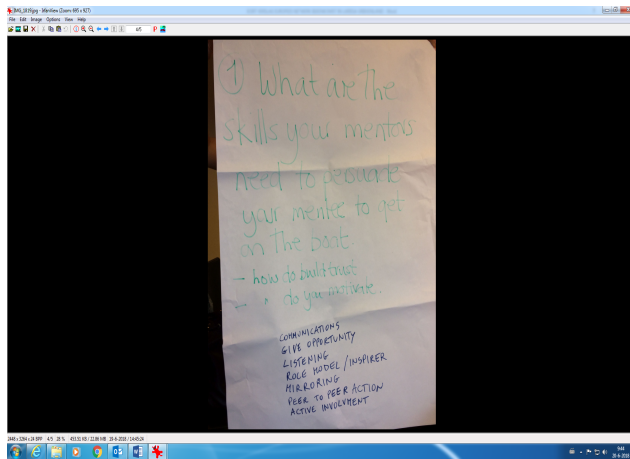 IMG_1819.jpg - IrfanView (Zoom: 695 x 927)
File Edit Image Options View Help
4/5
① What are the
skills your mentors
need to persuade
your mentee to get
on the boat.
- how to build trust
- " do you motivate.
COMMUNICATIONS
GIVE OPPORTUNITY
LISTENING
ROLE MODEL / INSPIRER
MIRRORING
PEER TO PEER ACTION
ACTIVE INVOLVMENT
2448 x 3264 x 24 BPP 4/5 28 % 453.51 KB / 22.86 MB 19-6-2018 / 14:45:24
9:44
20-6-2018